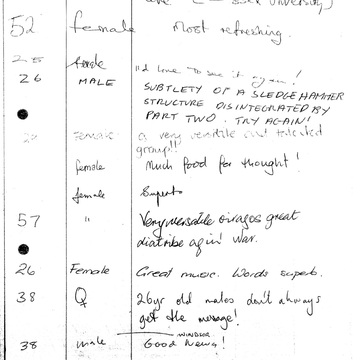 52 female Most refreshing.
female I'd love to see it again!
26 MALE SUBTLETY OF A SLEDGEHAMMER
STRUCTURE DISINTEGRATED BY
PART TWO. TRY AGAIN!
Female a very versatile and talented
group!!
female Much food for thought!
female Superb
57 " Very versatile images great
diatribe agin' war.
26 Female Great music. Words superb.
38 ♀ 26yr old males don't always
get the message!
WINDSOR
38 male Good News!